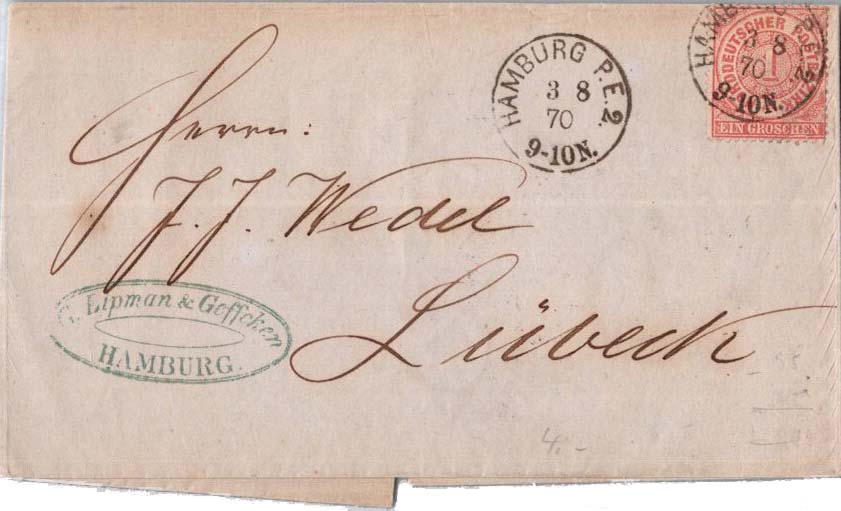 HAMBURG P.E.2.
3 8
70
9-10N.
HAMBURG P.E.2.
3 8
70
9-10N.
NORDDEUTSCHER POSTBEZIRK
1
EIN GROSCHEN
Herrn:
J. J. Wedel
Lübeck
Lipman & Geffcken
HAMBURG.
4.-